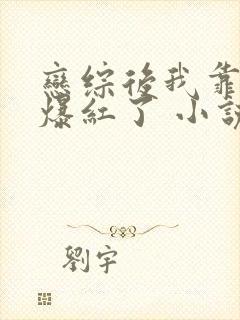 戀綜後我靠
爆紅了 小說
劉宇